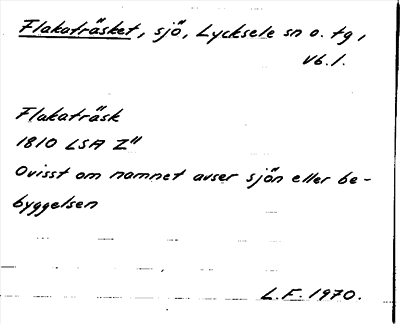 Flakaträsket, sjö, Lycksele sn o. tg,
Vb.l.
Flakaträsk
1810 LSA Z"
Ovisst om namnet avser sjön eller be-
byggelsen
L.F. 1970.